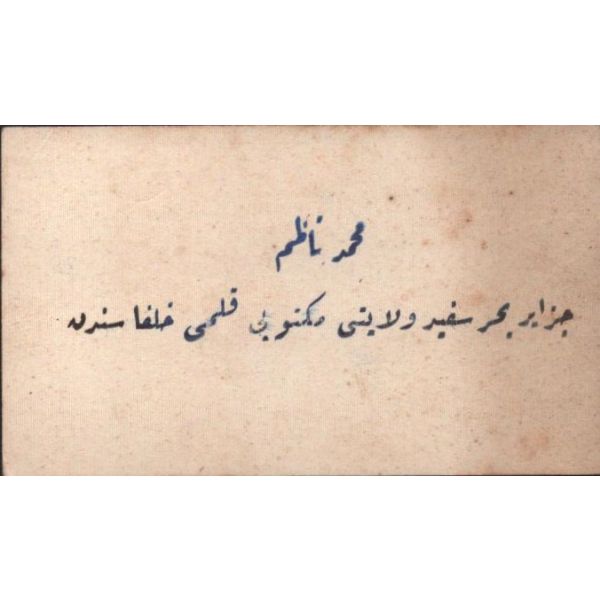 محمد ناظم
جزایر بحر سفید ولایتی مکتوبی قلمی خلفا سندن